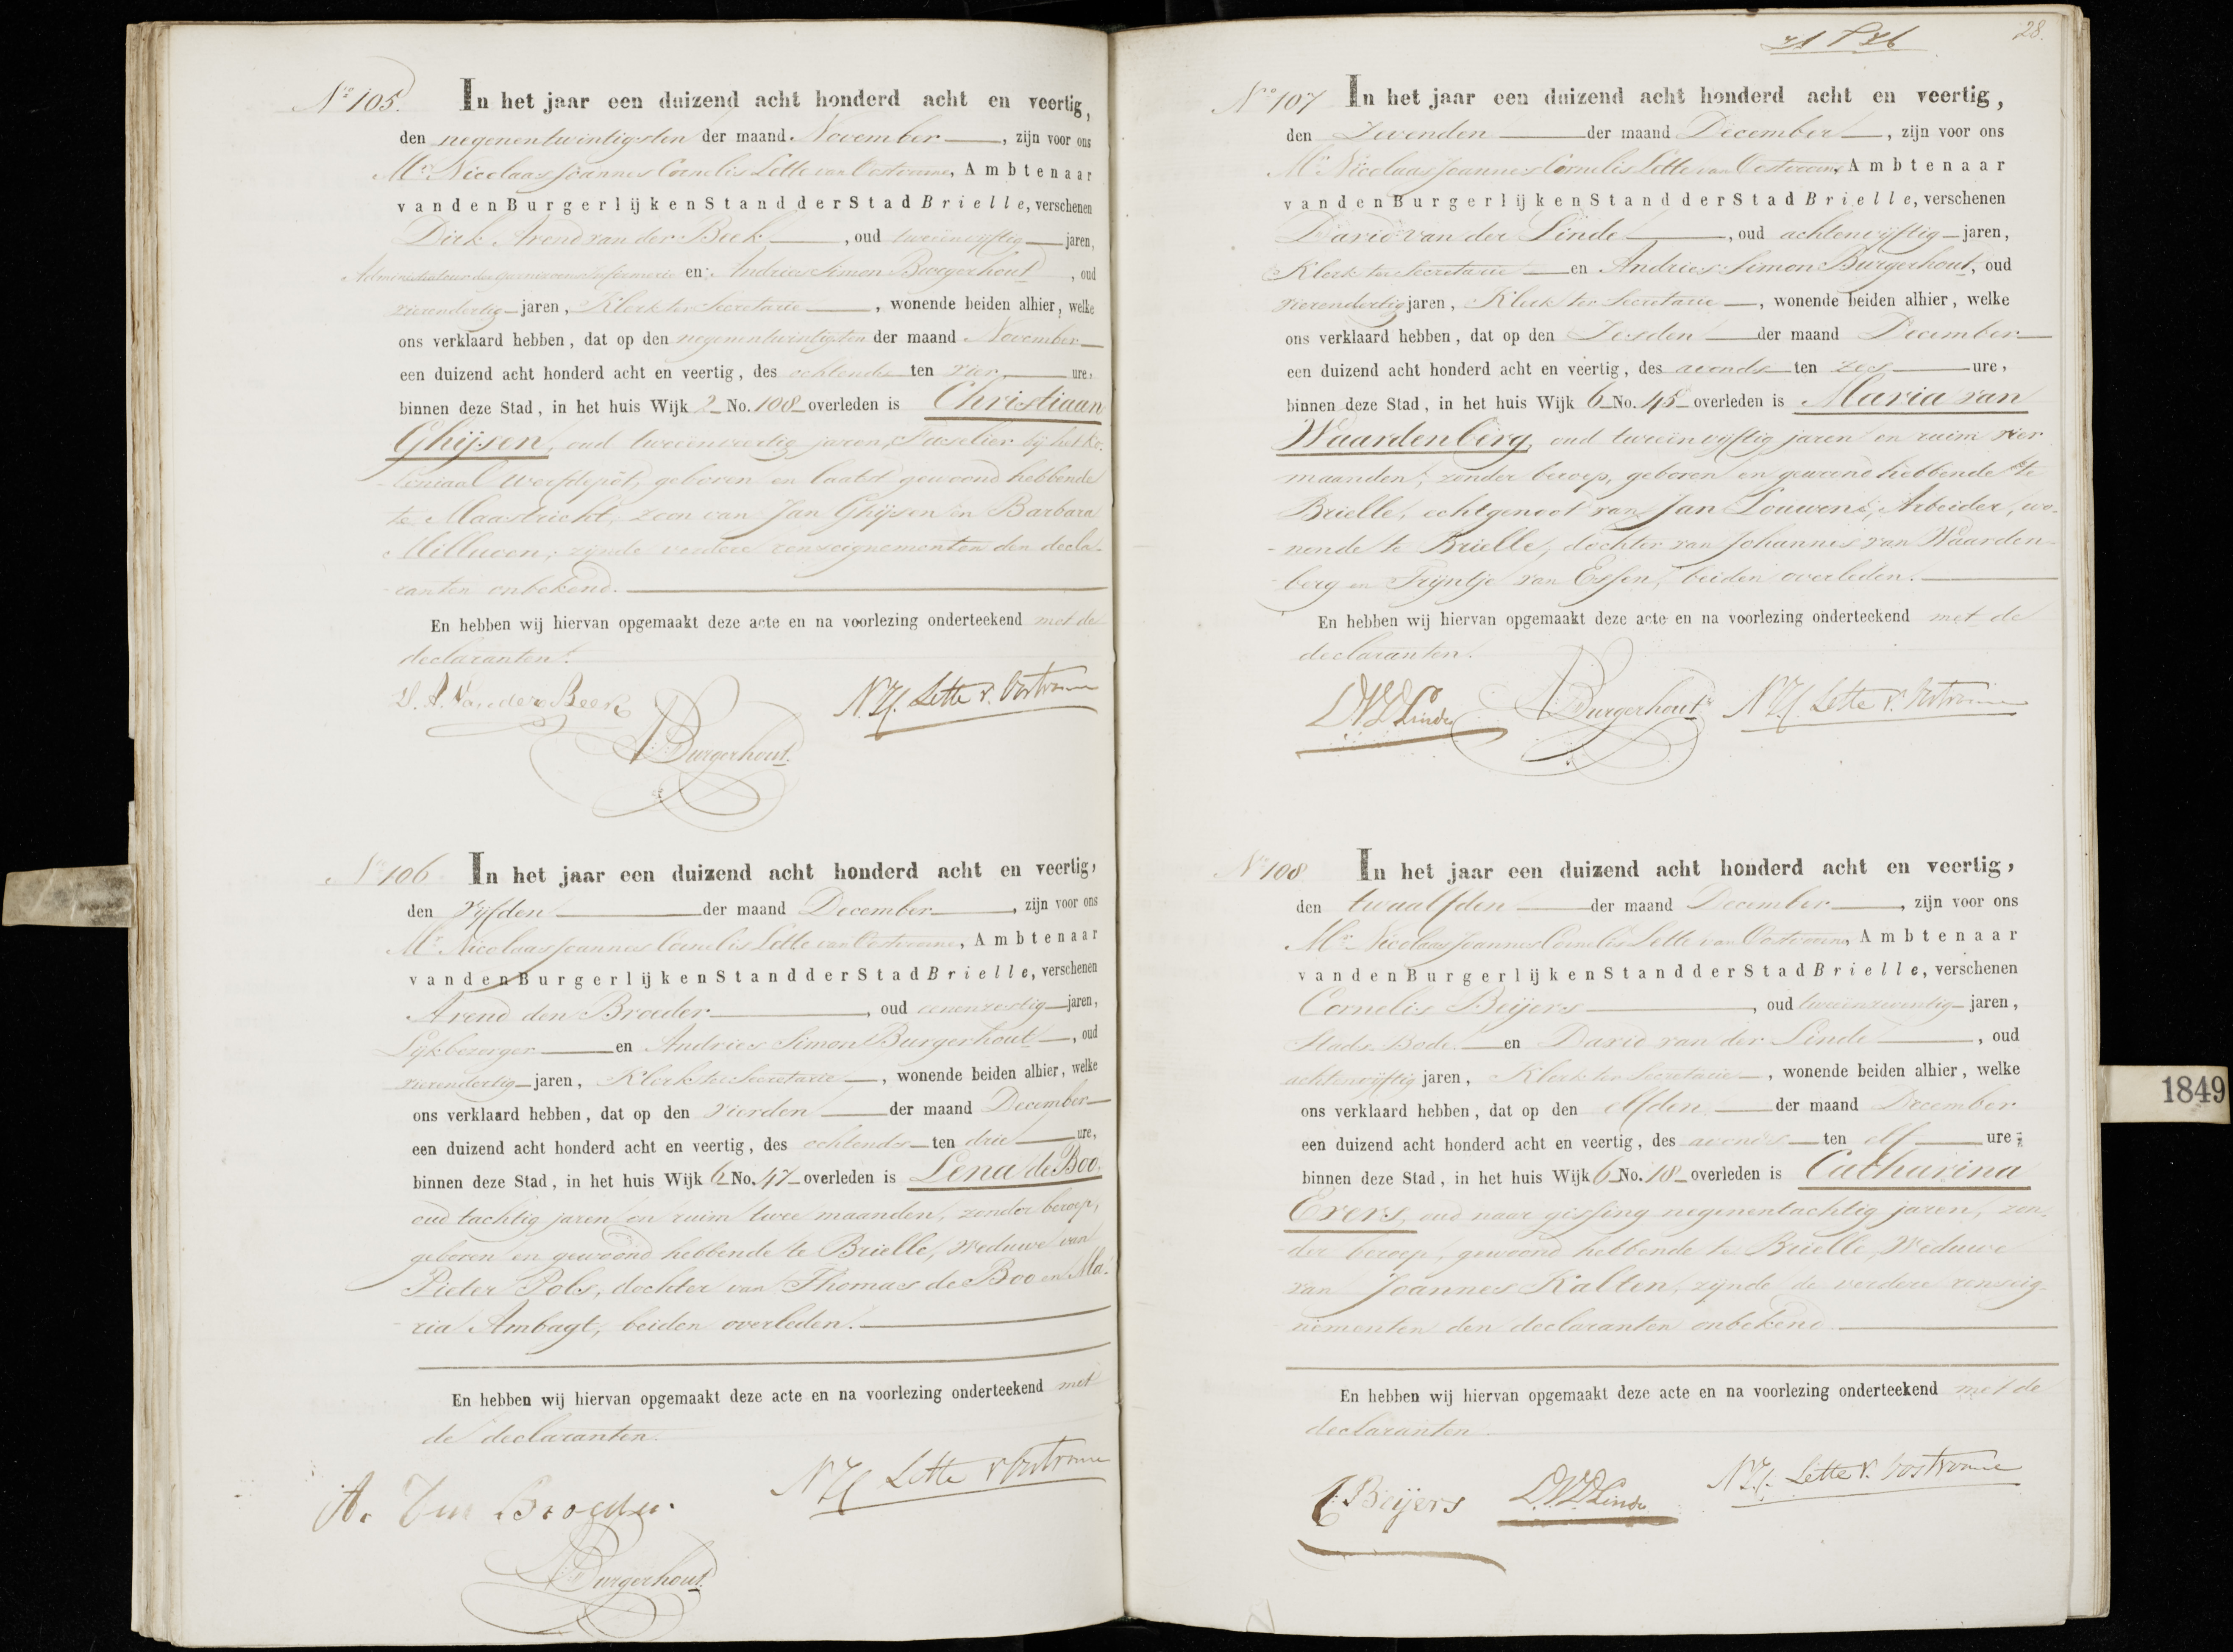 No 105. In het jaar een duizend acht honderd acht en veertig,
den negenentwintigsten der maand November, zijn voor ons
Mr. Nicolaas Joannes Cornelis Lette van Oostvoorne, Ambtenaar
van den Burgerlijken Stand der Stad Brielle, verschenen
Dirk Arend van der Beek, oud tweeënvijftig jaren,
Administrateur der Garnizoens Infirmerie en Andries Simon Burgerhout, oud
vierendertig jaren, Klerk ter Secretarie, wonende beiden alhier, welke
ons verklaard hebben, dat op den negenentwintigsten der maand November
een duizend acht honderd acht en veertig, des ochtends ten vier ure,
binnen deze Stad, in het huis Wijk 2 No. 108 overleden is Christiaan
Ghijsen, oud tweeënveertig jaren, Fuselier bij het Ko-
loniaal Werfdepôt, geboren en laatst gewoond hebbende
te Maastricht, zoon van Jan Ghijsen en Barbara
Millucen; zijnde verdere renseignementen den decla-
ranten onbekend.
En hebben wij hiervan opgemaakt deze acte en na voorlezing onderteekend met de
declaranten.
D. A. Van der Beek
N.J.C. Lette v. Oostvoorne
ASBurgerhout.
No 106 In het jaar een duizend acht honderd acht en veertig,
den vijfden der maand December, zijn voor ons
Mr. Nicolaas Joannes Cornelis Lette van Oostvoorne, Ambtenaar
van den Burgerlijken Stand der Stad Brielle, verschenen
Arend den Broeder, oud zevenzestig jaren,
Lijkbezorger en Andries Simon Burgerhout, oud
vierendertig jaren, Klerk ter Secretarie, wonende beiden alhier, welke
ons verklaard hebben, dat op den vierden der maand December
een duizend acht honderd acht en veertig, des ochtends ten drie ure,
binnen deze Stad, in het huis Wijk 6 No. 47 overleden is Lena de Boo,
oud tachtig jaren en ruim twee maanden, zonder beroep,
geboren en gewoond hebbende te Brielle, Weduwe van
Pieter Pols, dochter van Thomas de Boo en Ma-
ria Ambagt, beiden overleden.
En hebben wij hiervan opgemaakt deze acte en na voorlezing onderteekend met
de declaranten.
A. den Broeder.
NJC Lette v Oostvoorne
ASBurgerhout.
28.
No 107 In het jaar een duizend acht honderd acht en veertig,
den Zevenden der maand December, zijn voor ons
Mr. Nicolaas Joannes Cornelis Lette van Oostvoorne, Ambtenaar
van den Burgerlijken Stand der Stad Brielle, verschenen
David van der Linde, oud achtenvijftig jaren,
Klerk ter Secretarie en Andries Simon Burgerhout, oud
vierendertig jaren, Klerk ter Secretarie, wonende beiden alhier, welke
ons verklaard hebben, dat op den Zesden der maand December
een duizend acht honderd acht en veertig, des avonds ten zes ure,
binnen deze Stad, in het huis Wijk 6 No. 45 overleden is Maria van
Waardenberg, oud tweeënvijftig jaren en ruim vier
maanden, zonder beroep, geboren en gewoond hebbende te
Brielle, echtgenoot van Jan Louwens, Arbeider, wo-
nende te Brielle, dochter van Johannes van Waarden-
berg en Trijntje van Essen, beiden overleden.
En hebben wij hiervan opgemaakt deze acte en na voorlezing onderteekend met de
declaranten.
DVDLinde
ASBurgerhout
NJC Lette v. Oostvoorne
No 108 In het jaar een duizend acht honderd acht en veertig,
den twaalfden der maand December, zijn voor ons
Mr. Nicolaas Joannes Cornelis Lette van Oostvoorne, Ambtenaar
van den Burgerlijken Stand der Stad Brielle, verschenen
Cornelis Beijers, oud tweeëntwintig jaren,
Stads Bode en David van der Linde, oud
achtenvijftig jaren, Klerk ter Secretarie, wonende beiden alhier, welke
ons verklaard hebben, dat op den elfden der maand December
een duizend acht honderd acht en veertig, des avonds ten elf ure,
binnen deze Stad, in het huis Wijk 6 No. 18 overleden is Catharina
Evers, oud naar gissing negenentachtig jaren, zon-
der beroep, gewoond hebbende te Brielle, Weduwe
van Joannes Kalten, zijnde de verdere renseig-
nementen den declaranten onbekend.
En hebben wij hiervan opgemaakt deze acte en na voorlezing onderteekend met de
declaranten.
C. Beijers
DVDLinde
NJC. Lette v. Oostvoorne
1849